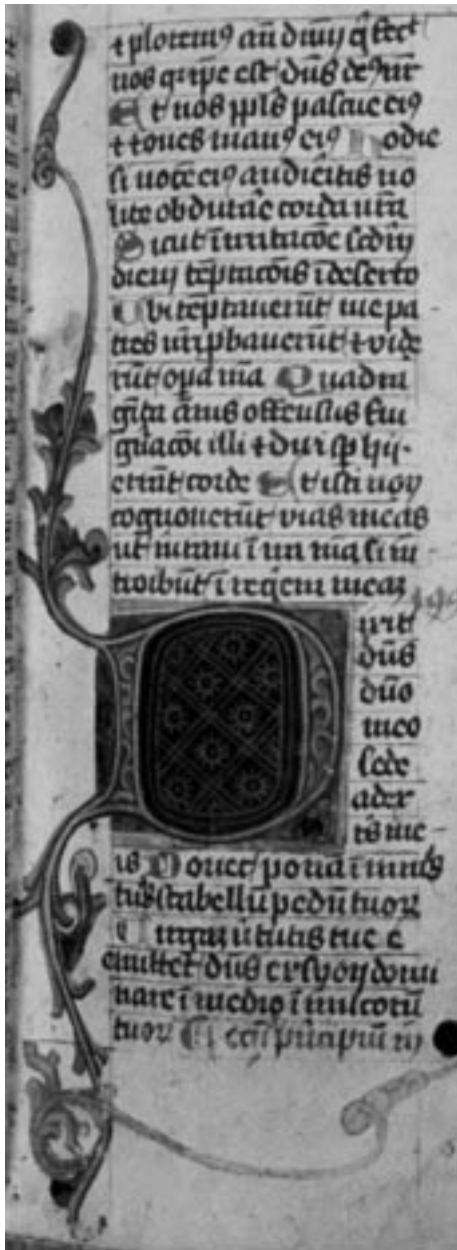 ⁊ ploremꝰ an̄ dn̄m q̄ fecͭ
nos quīpe est dn̄s deꝰ nr̄
Et nos ppl̄s pascue eiꝰ
⁊ oues manꝰ eiꝰ hodie
si uocē eiꝰ audiēitis no
lite obdurāe corda ur̄a
Sicut ī irritacōe scd̄m
diem tēptacōis ī deserto
Ubi tēptauerūt me pa
tres ur̄i ꝓbauerūt ⁊ vide
rūt oꝑa m̄a Quadra
gīta ānis offensus fui
gn̄acōi illi ⁊ dixi sꝑ hij
errāt corde Et isti non
cognouerūt vias meas
ut iuraui ī ira m̄a si īn
troibūt ī reqēm meam
Dixit
dn̄s
dn̄o
meo
sede
a dex
tris me
is Donec ponā īimicos
tuos scabellū pedū tuoꝝ
Virgam ūtutis tue e
mittet dn̄s ex syon domi
nare ī medio īimicorū
tuoꝝ Tecū pͥncipiū in